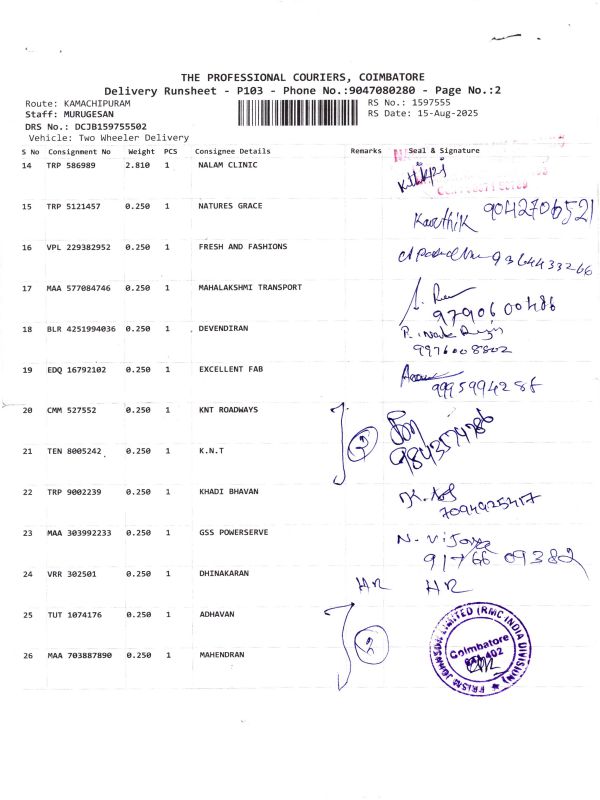 THE PROFESSIONAL COURIERS, COIMBATORE
Delivery Runsheet - P103 - Phone No.:9047080280 - Page No.:2
Route: KAMACHIPURAM RS No.: 1597555
Staff: MURUGESAN RS Date: 15-Aug-2025
DRS No.: DCJB159755502
Vehicle: Two Wheeler Delivery
S No Consignment No Weight PCS Consignee Details Remarks Seal & Signature
14 TRP 586989 2.810 1 NALAM CLINIC
15 TRP 5121457 0.250 1 NATURES GRACE Karthik 9042706521
16 VPL 229382952 0.250 1 FRESH AND FASHIONS 9364433266
17 MAA 577084746 0.250 1 MAHALAKSHMI TRANSPORT 9790600486
18 BLR 4251994036 0.250 1 DEVENDIRAN
9976008802
19 EDQ 16792102 0.250 1 EXCELLENT FAB
9995994285
20 CMM 527552 0.250 1 KNT ROADWAYS
2 9843574786
21 TEN 8005242 0.250 1 K.N.T
22 TRP 9002239 0.250 1 KHADI BHAVAN
7094925417
23 MAA 303992233 0.250 1 GSS POWERSERVE N. Vijaya
9176609382
24 VRR 302501 0.250 1 DHINAKARAN HR HR
25 TUT 1074176 0.250 1 ADHAVAN
2
26 MAA 703887890 0.250 1 MAHENDRAN
PRISM JOHNSON LIMITED (RMC INDIA DIVISION)
Coimbatore